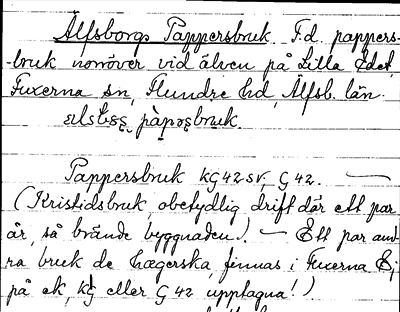 Älfsborgs Pappersbruk F.d. pappers-
-bruk norröver vid älven på Lilla Edet,
Fuxerna sn, Flundre hd, Älfsb. län.
pàpərsbruk.
Pappersbruk KG 42 SV, G 42. —
(Kristidsbruk, obetydlig drift där ett par
år, så brände byggnaden). — Ett par and-
ra bruk de Hægerska, finnas i Fuxerna Ej
på ek, kG eller G 42 upptagna!)